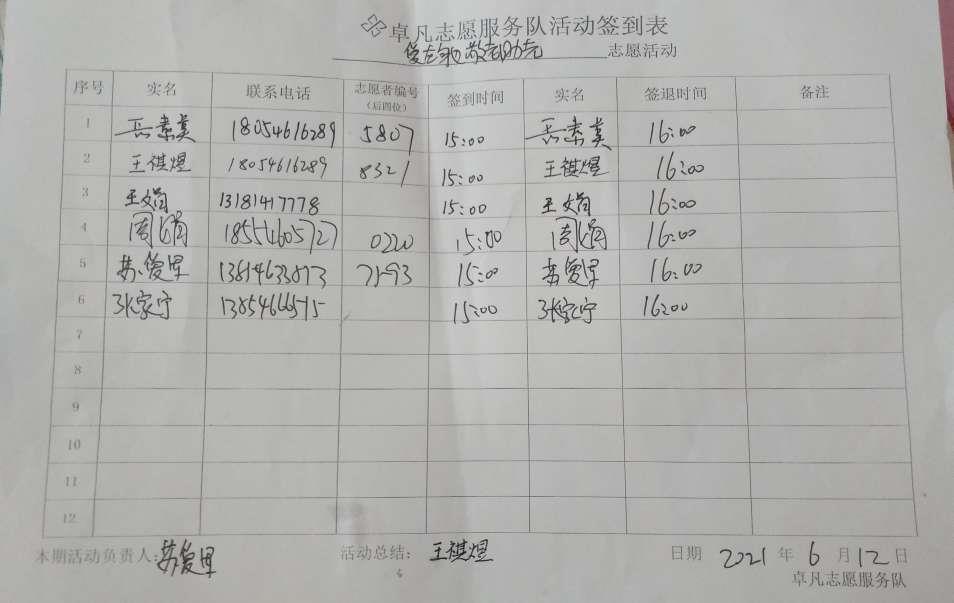 卓凡志愿服务队活动签到表
敬老助老 志愿活动
序号 实名 联系电话 志愿者编号（后四位） 签到时间 实名 签退时间 备注
1 素英 18054616289 5807 15:00 素英 16:00
2 王祺煜 18054616289 8321 15:00 王祺煜 16:00
3 王娟 13181417778 15:00 王娟 16:00
4 周娟 18554605727 0220 15:00 周娟 16:00
5 苏俊星 7193 15:00 苏俊星 16:00
6 张家宁 15:00 张家宁 16:00
7
8
9
10
11
12
本期活动负责人: 苏俊星 活动总结: 王祺煜 日期 2021 年 6 月 12 日
卓凡志愿服务队